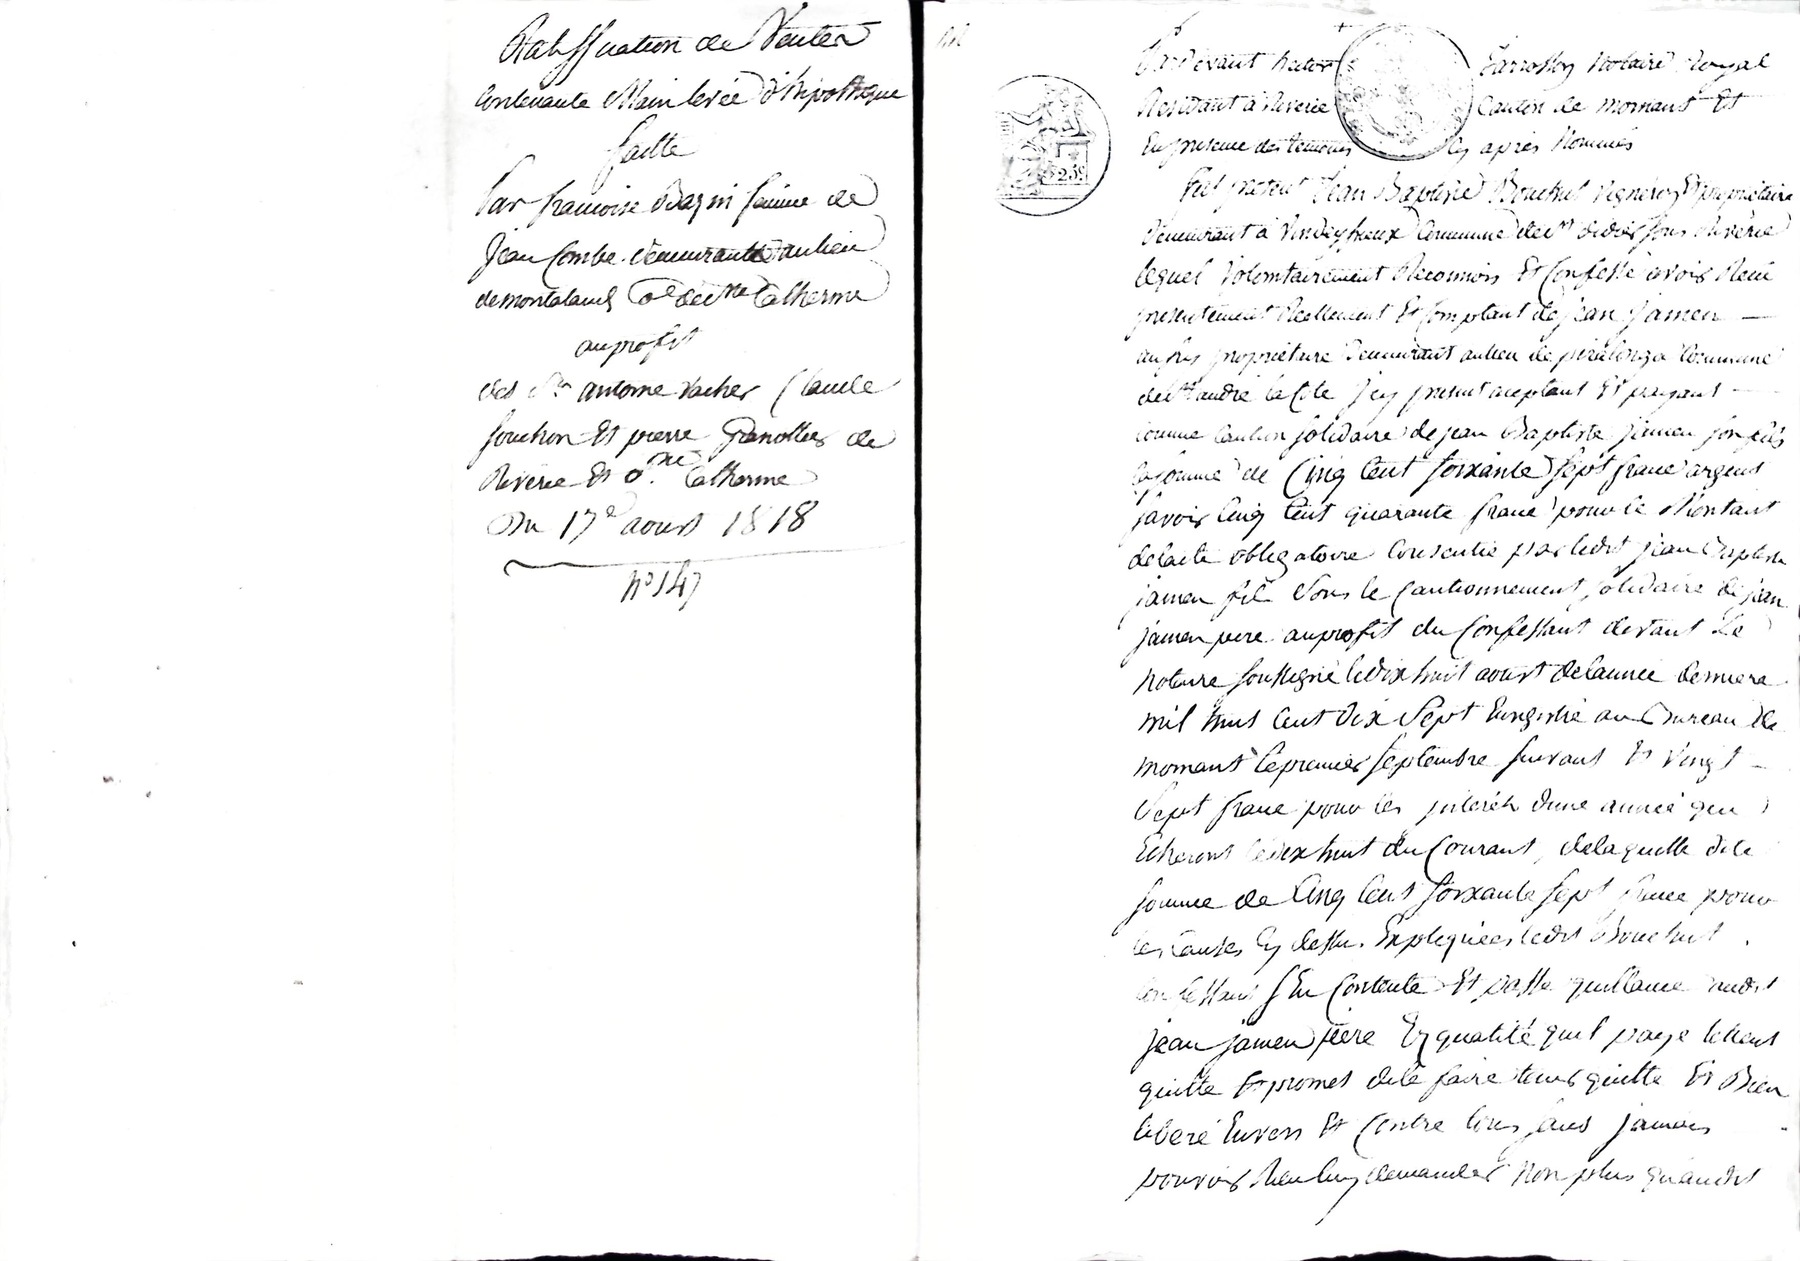 Ratiffication de Ventes
Contenante Main levée d'hipothèque
faitte
Par francoise Bazin femme de
Jean Combe demeurante au lieu
de montaland Cne de Ste Catherine
au profit
des Srs antoine vacher Claude
souchon Et pierre Grenottier de
Riverie Et Ste Catherine
Du 17e aoust 1818
N° 147
Pardevant hector Notaire Royal
Residant à Riverie Canton de mornant Et
En presence des temoins Cy après Nommés
Fut present Jean Baptiste Bouchut vigneron Et propriétaire
demeurant à Vindeyrieux Commune de St didier sous Riverie
lequel Volontairement Reconnois Et Confesse avoir Recu
presentement Reellement Et Comptant de jean jamen
propriétaire demeurant au lieu de Commune
de St andré la Cote Icy present aceptant Et payant
Comme Caution solidaire de jean Baptiste jamen son fils
la somme de Cinq Cent soixante sept franc argent
savoir Cinq Cent quarante franc pour le Montant
de l'acte obligatoire Consentie par ledit jean Baptiste
jamen fils Sous le Cautionnement solidaire de jean
jamen pere au profit du Confessant devant Le
Notaire soussigné le dix huit aoust de l'année derniere
mil huit Cent dix Sept Enregistré au Bureau de
mornant le premier septembre suivant Et Vingt
Sept franc pour les intérêts d'une année qui
Echeront le dix huit du Courant, de laquelle dite
somme de Cinq Cent soixante sept franc pour
les Causes Cy dessus Expliquées ledit Bouchut
Confessant s'En Contente Et passe quittance audit
jean jamen père En qualité qu'il paye le tient
quitte Et promet de le faire tenir quitte Et Bien
liberé Envers Et Contre tous sans jamais
pouvoir Rien luy demander Non plus qu'audit